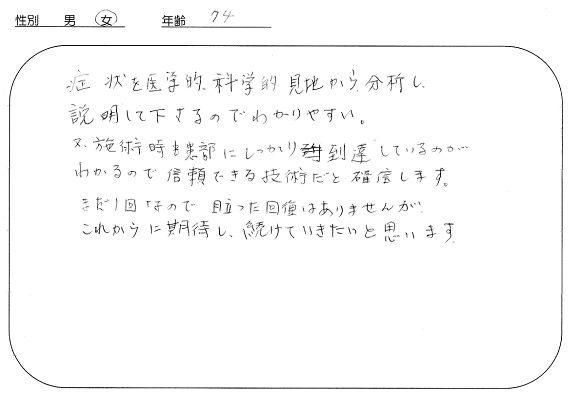 性別 男 女 年齢 74
症状を医学的、科学的見地から、分析し、
説明して下さるのでわかりやすい。
又、施術時も患部にしっかり到達しているのが
わかるので信頼できる技術だと確信します。
まだ1回なので目立った回復はありませんが、
これからに期待し、続けていきたいと思います。